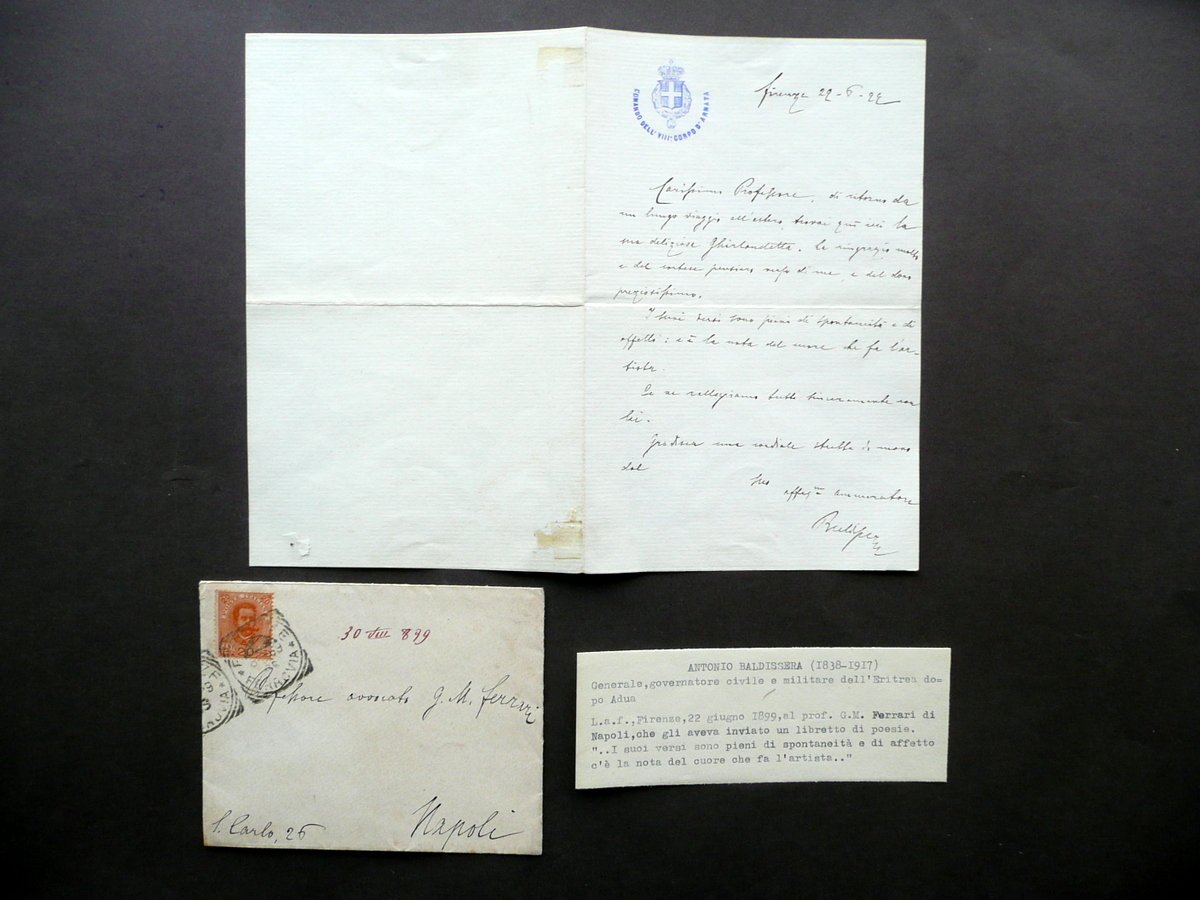 COMANDO DELL'VIII° CORPO D'ARMATA
Firenze 22-6-99
Carissimo Professore, di ritorno da
un lungo viaggio all'estero, trovai qui ieri la
sua deliziosa Ghirlandetta. La ringrazio molto
e del cortese pensiero verso di me, e del dono
preziosissimo.
I suoi versi sono pieni di spontaneità e di
affetto: c'è la nota del cuore che fa l'ar-
tista.
Se ne rallegriamo tutti sinceramente con
lei.
Gradisca una cordiale stretta di mano
dal
suo
affez.mo ammiratore
Baldissera
30 VIII 899
Professore avvocato G. M. Ferrari
S. Carlo, 26
Napoli
FERROVIA
ANTONIO BALDISSERA (1838-1917)
Generale,governatore civile e militare dell'Eritrea do-
po Adua
L.a.f.,Firenze,22 giugno 1899,al prof. G.M. Ferrari di
Napoli,che gli aveva inviato un libretto di poesie.
"..I suoi versi sono pieni di spontaneità e di affetto
c'è la nota del cuore che fa l'artista.."